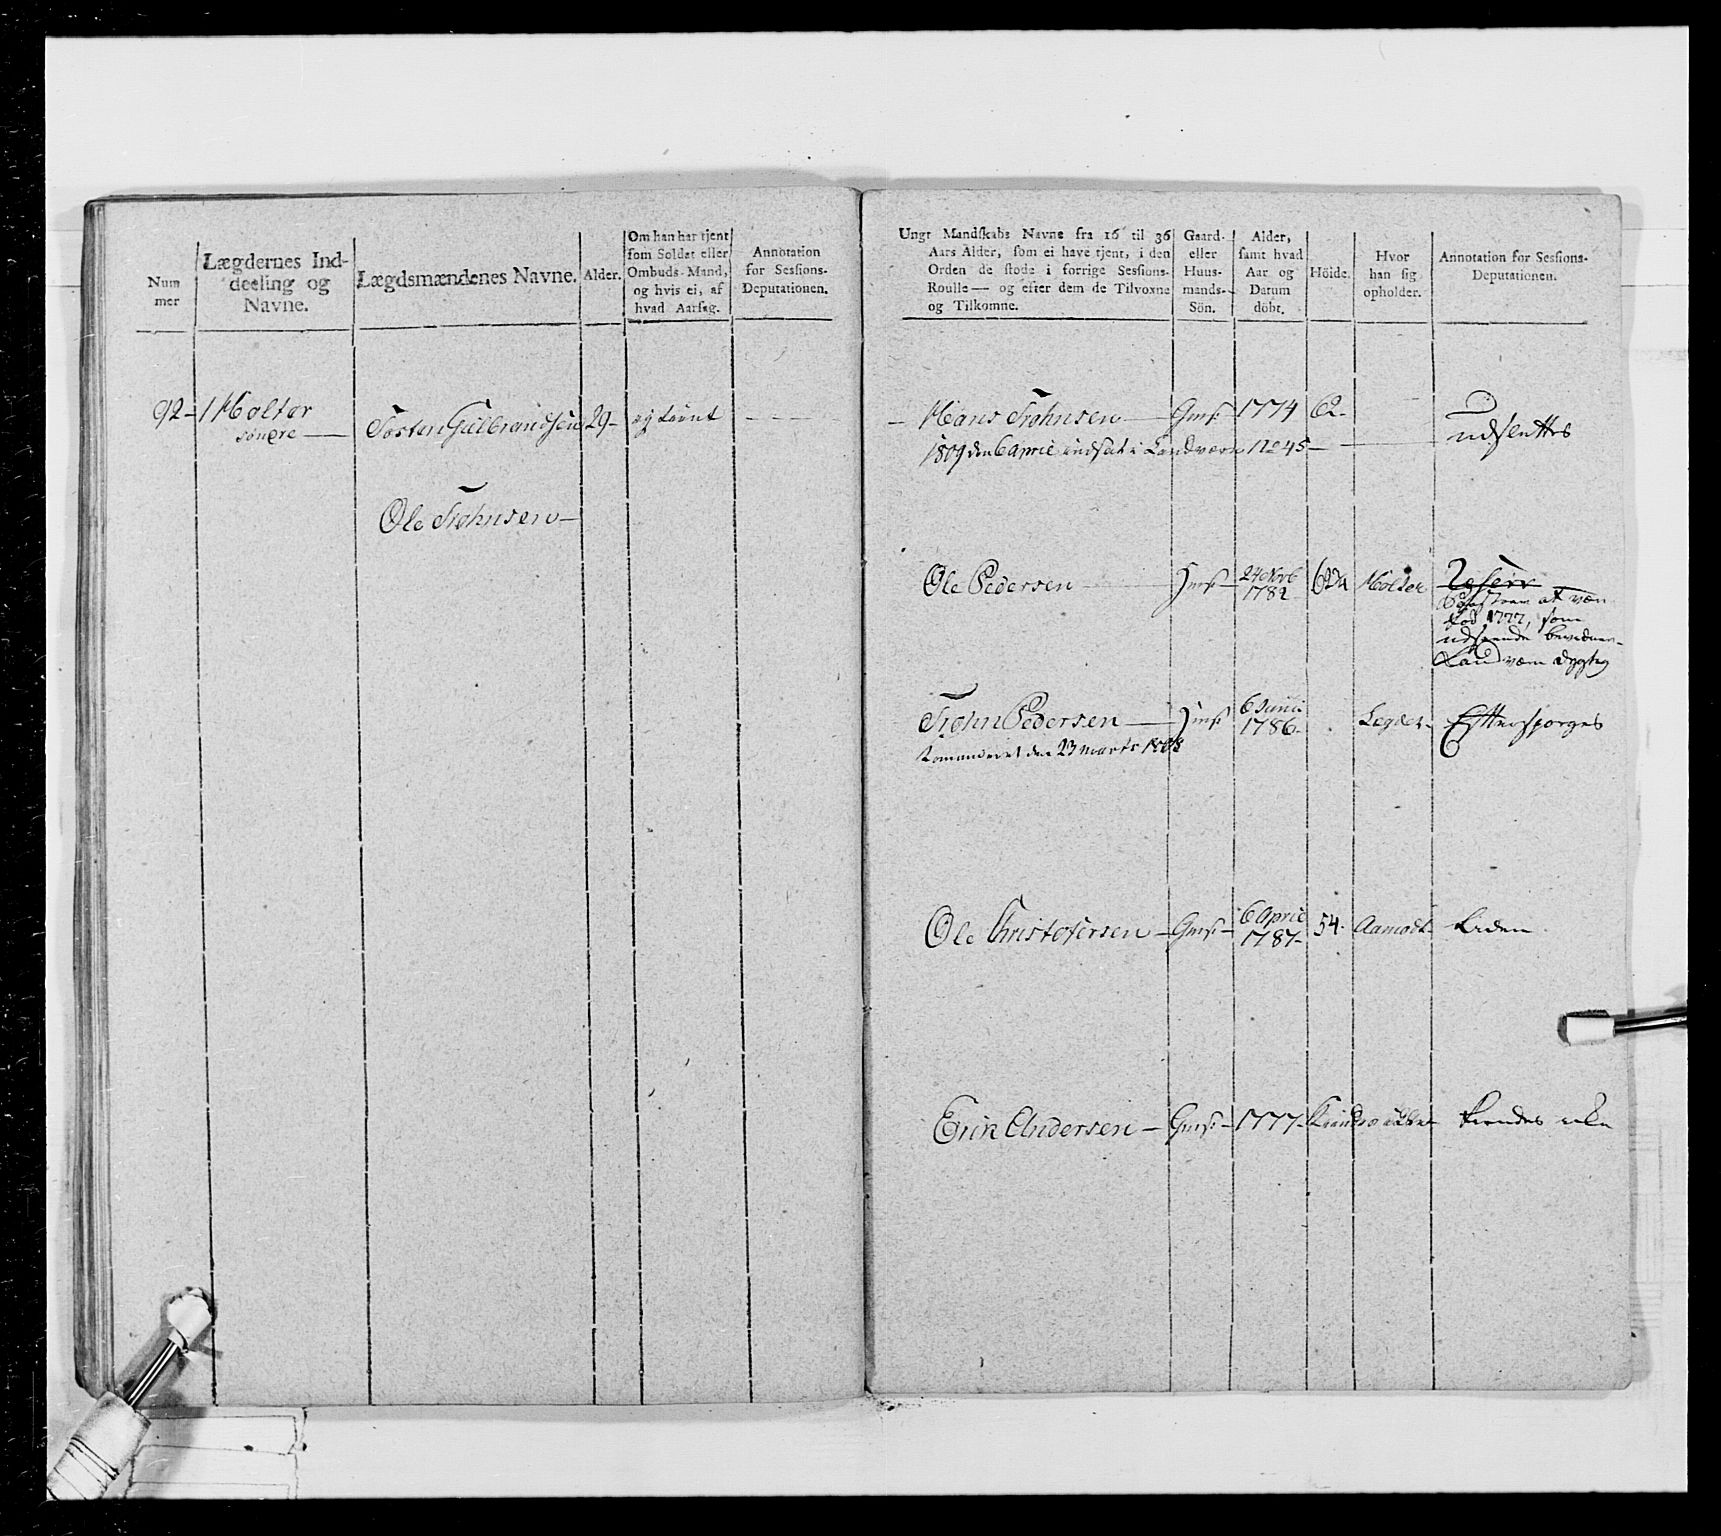 Num
mer
Lægdernes Ind-
deeling og
Navne.
Lægdsmændenes Navne.
Alder.
Om han har tjent
som Soldat eller
Ombuds-Mand,
og hvis ei, af
hvad Aarsag.
Annotation
for Sessions-
Deputationen.
92 - 1 Molter
søndre
Tosten Gulbrandsen 29 -
Ole Trohnsen
Ungt Mandskabs Navne fra 16 til 36
Aars Alder, som ei have tjent, i den
Orden de stode i forrige Sessions-
Roulle — og efter dem de Tilvoxne
og Tilkomne.
Gaard-
eller
Huus-
mands-
Sön.
Alder,
samt hvad
Aar og
Datum
döbt.
Höide.
Hvor
han sig
opholder.
Annotation for Sessions-
Deputationen.
Hans Trohnsen — Gmsf - 1774 62 - udslettes
1809 den 6 April indsat i Landværn No 45 -
Ole Pedersen Hmsf 24 Novb
1782 Molter
at være
fød 1777, som
Landværn dygtig
Trohn Pedersen — Hmsf 6 Juni
1786 - Legdet - Efterspørges
Komanderet den 23 marts 1808
Ole Christofersen - Gmsf - 6 April
1787 - 54 - Aamodt - Liden
Erik Andersen - Gmsf - 1777 - kiendes